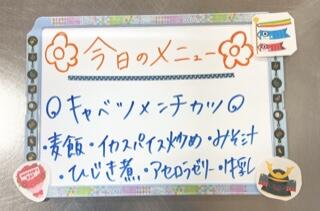 今日のメニュー
◎キャベツメンチカツ◎
・麦飯・イカスパイス炒め・みそ汁
・ひじき煮・アセロラゼリー・牛乳